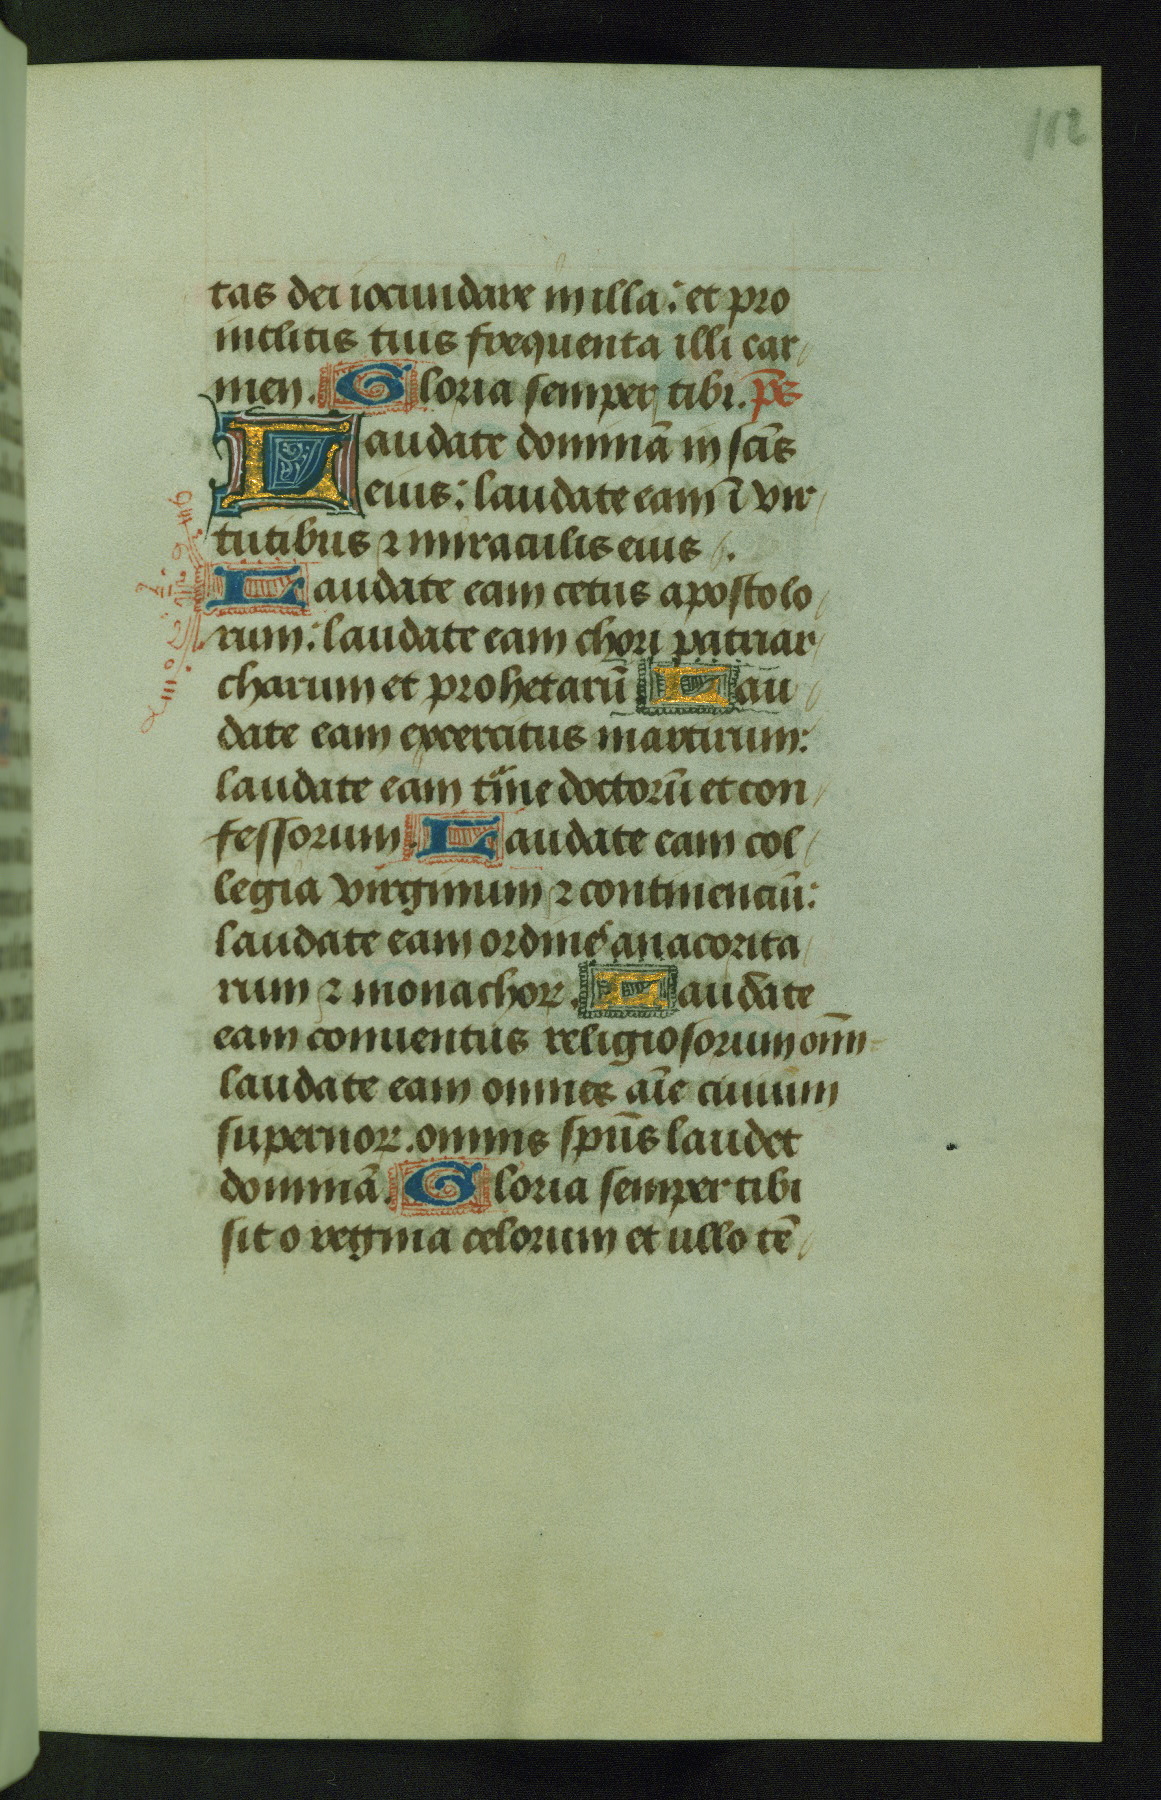 112
tas dei iocundare in illa: et pro
inclitis tuis frequenta illi car
men. Gloria semper tibi. ps̄
Laudate dominā in scīs
eius: laudate eam ī vir
tutibus ⁊ miraculis eius.
Laudate eam cetus apostolo
rum: laudate eam chori patriar
charum et prohetarū Lau
date eam excercitus martirum:
laudate eam tᵐine doctorū et con
fessorum. Laudate eam col
legia virginum ⁊ continenciū:
laudate eam ordines anacorita
rum ⁊ monachoꝝ. Laudate
eam conuentus religiosorum om̄
laudate eam omnes aīe ciuium
supernoꝝ. omnis spūs laudet
dominā. Gloria semper tibi
sit o regina celorum et ullo tē